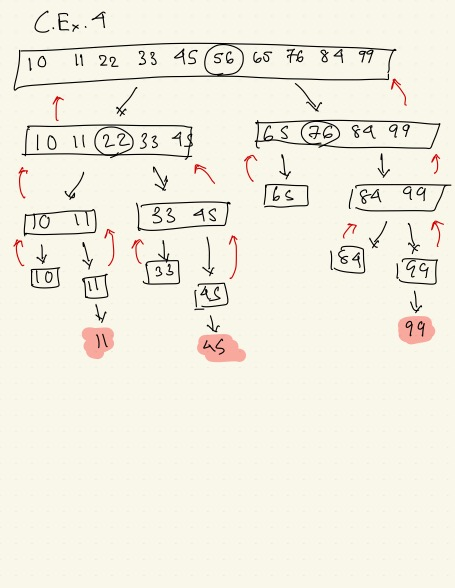 C.Ex. 4
10 11 22 33 45 56 65 76 84 99
10 11 22 33 45
65 76 84 99
10 11
33 45
65
84 99
10
11
33
45
84
99
11
45
99